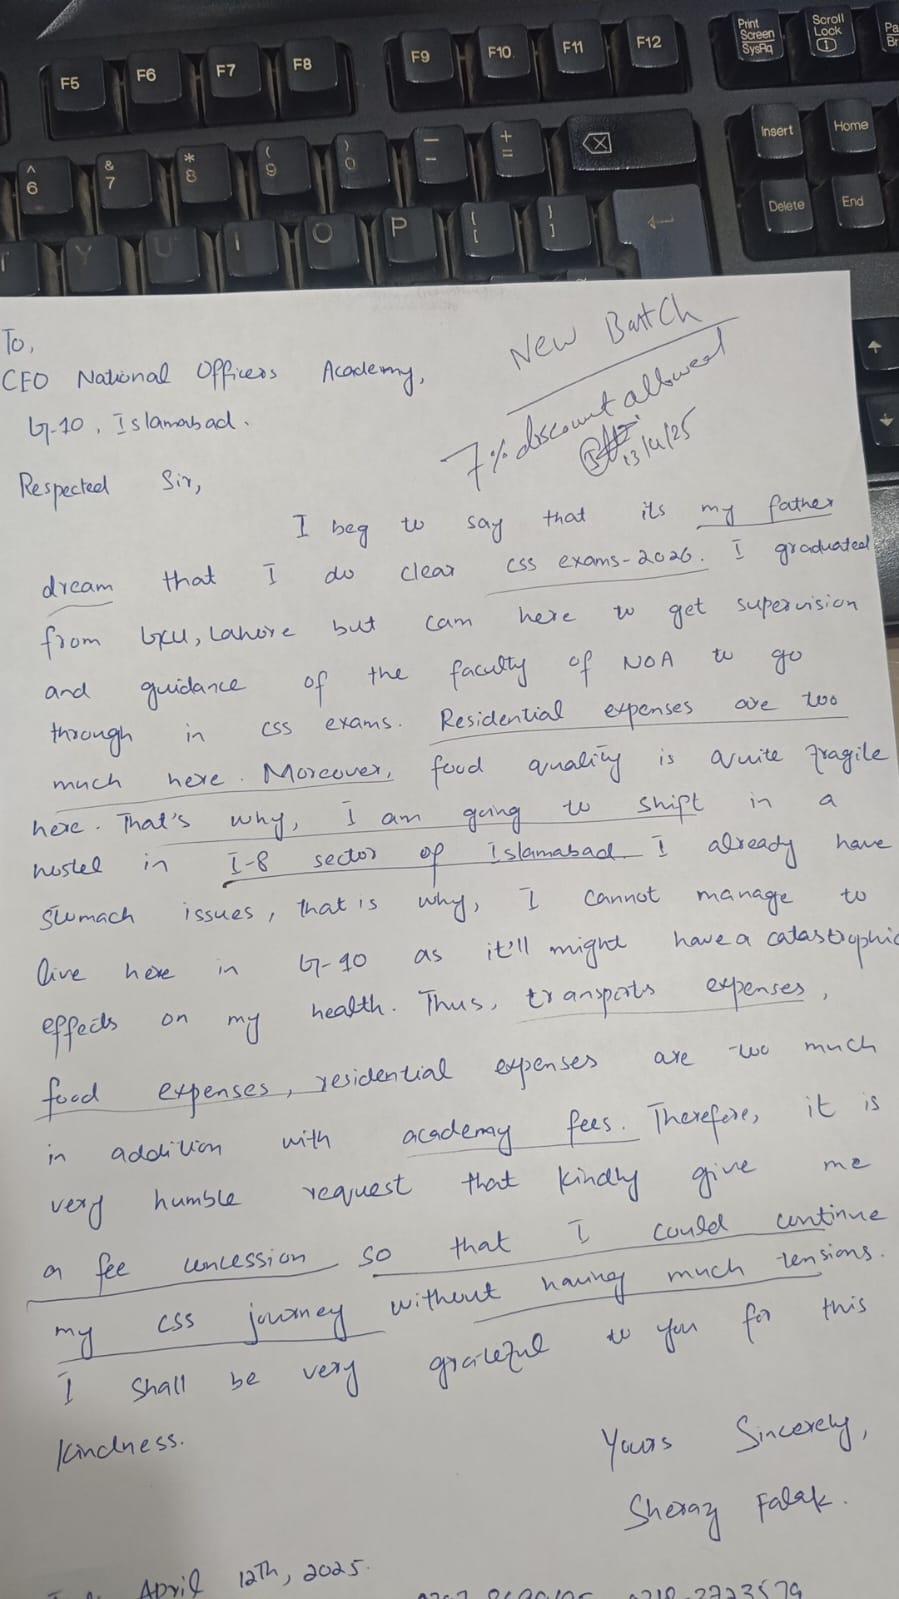 F5 F6 F7 F8 F9 F10 F11 F12 Print Screen SysRq Scroll Lock
^ 6 & 7 * 8 ( 9 ) 0 — - + = Insert Home
Y U I O P { [ } ] Delete End
New Batch
7% discount allowed
13/4/25
To,
CEO National Officers Academy,
G-10, Islamabad.
Respected Sir,
I beg to say that its my father
dream that I do clear css exams-2026. I graduated
from GCU, Lahore but cam here to get supervision
and guidance of the faculty of NOA to go
through in css exams. Residential expenses are too
much here. Moreover, food quality is quite fragile
here. That's why, I am going to shift in a
hostel in I-8 sector of Islamabad. I already have
stomach issues, that is why, I cannot manage to
live here in G-10 as it'll might have a catastrophic
effects on my health. Thus, transports expenses,
food expenses, residential expenses are too much
in addition with academy fees. Therefore, it is
very humble request that kindly give me
a fee concession so that I could continue
my css journey without having much tensions.
I shall be very grateful to you for this
kindness.
Yours Sincerely,
Sheraz Falak.
April 12th, 2025.